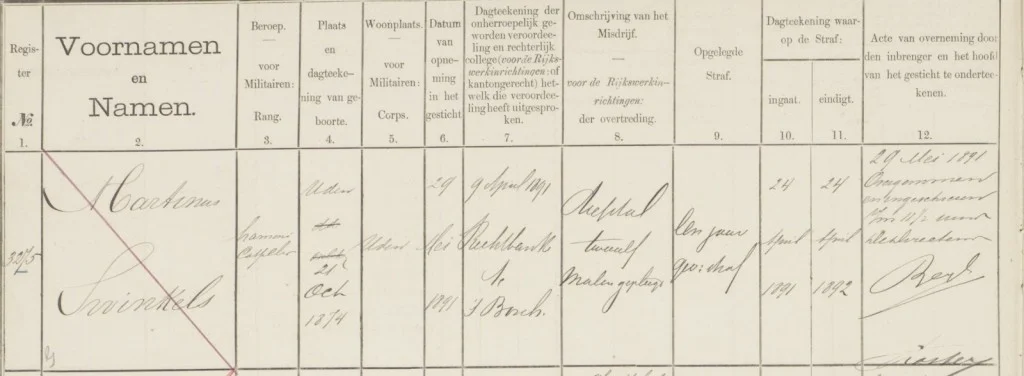 Regis-
ter
No
1.
Voornamen
en
Namen.
2.
Beroep.
voor
Militairen:
Rang.
3.
Plaats
en
dagteeke-
ning van ge-
boorte.
4.
Woonplaats.
voor
Militairen:
Corps.
5.
Datum
van
opne-
ming
in het
gesticht
6.
Dagteekening der
onherroepelijk ge-
worden veroordee-
ling en rechterlijk
college (voor de Rijks-
werkinrichtingen: of
kantongerecht) het-
welk die veroordee-
ling heeft uitgespro-
ken.
7.
Omschrijving van het
Misdrijf.
voor de Rijkswerkin-
richtingen:
der overtreding.
8.
Opgelegde
Straf.
9.
Dagteekening waar-
op de Straf:
ingaat.
10.
eindigt.
11.
Acte van overneming door
den inbrenger en het hoofd
van het gesticht te onderteе-
kenen.
12.
3275
Martinus
Swinkels
Uden
21
Oct
1874
Uden
29
Mei
1891
9 April 1891
Rechtbank
te
s Bosch.
diefstal
twaalf
malen gepleegd
een jaar
gev: straf
24
April
1891
24
April
1892
29 Mei 1891
Overgenomen